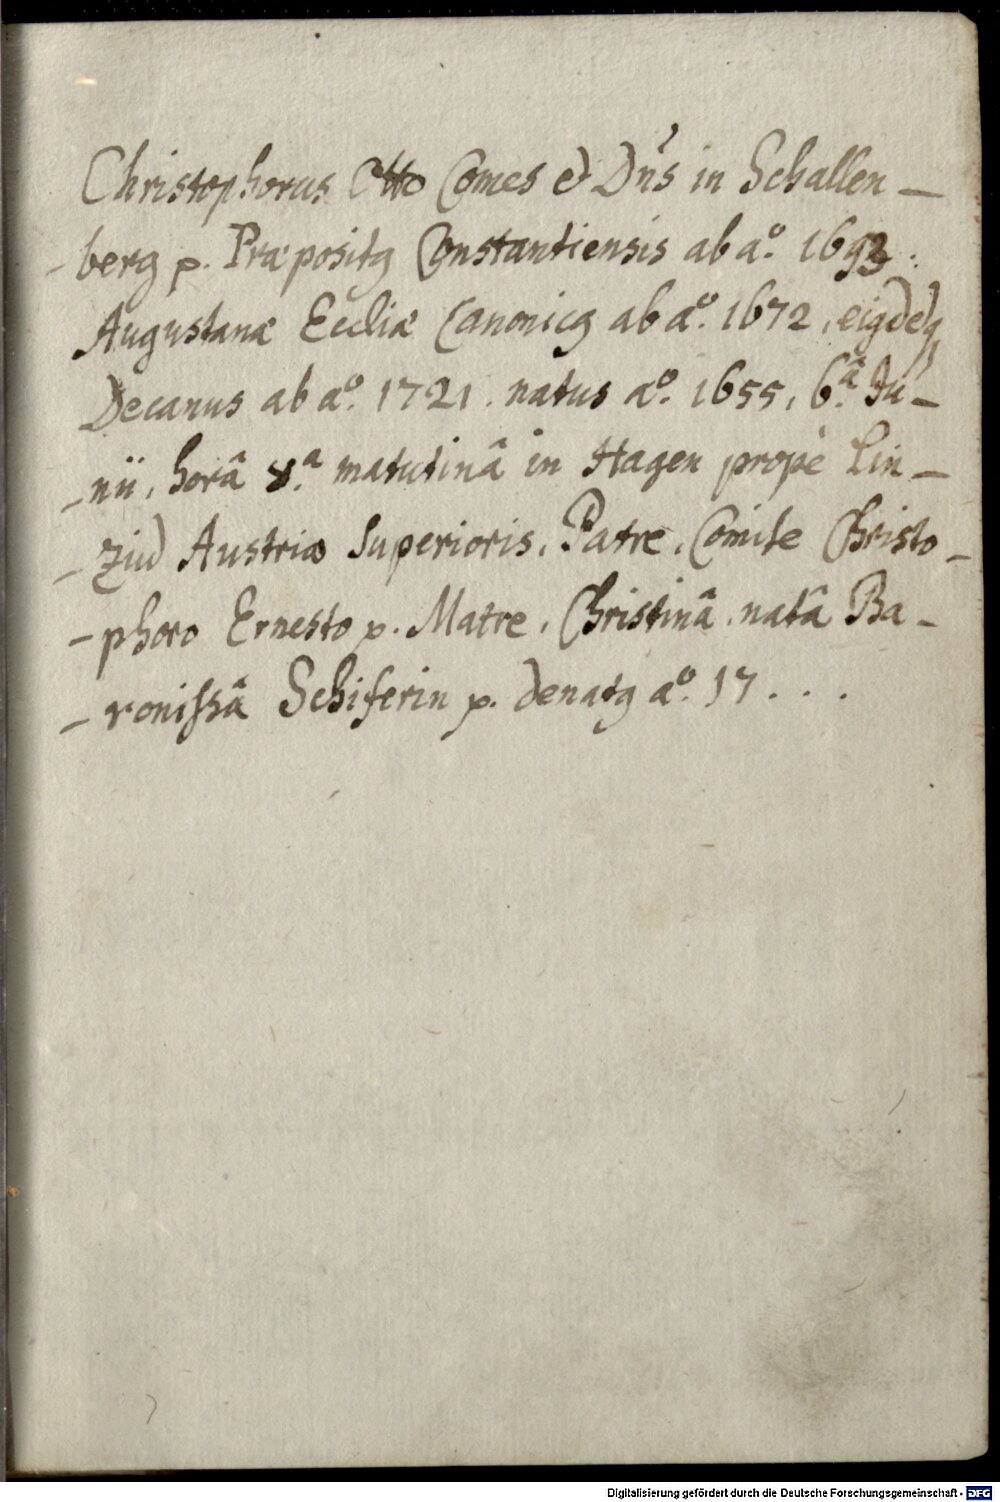 Christophorus Otto Comes et Dn̄s in Schallen-
-berg p. Præpositꝰ Constantiensis ab aº. 1693.
Augustanæ Eccliæ Canonicꝰ ab aº. 1672, eiꝰdēq
Decanus ab aº. 1721. natus aº. 1655, 6.ª Ju-
-nii, horâ 8.ª matutinâ in Hagen propè Lin-
-ziū Austriæ Superioris, Patre, Comite Christo-
-phoro Ernesto p. Matre, Christinâ, natâ Ba-
-ronissâ Schiferin p. denatꝰ aº. 17 . . .
Digitalisierung gefördert durch die Deutsche Forschungsgemeinschaft - DFG